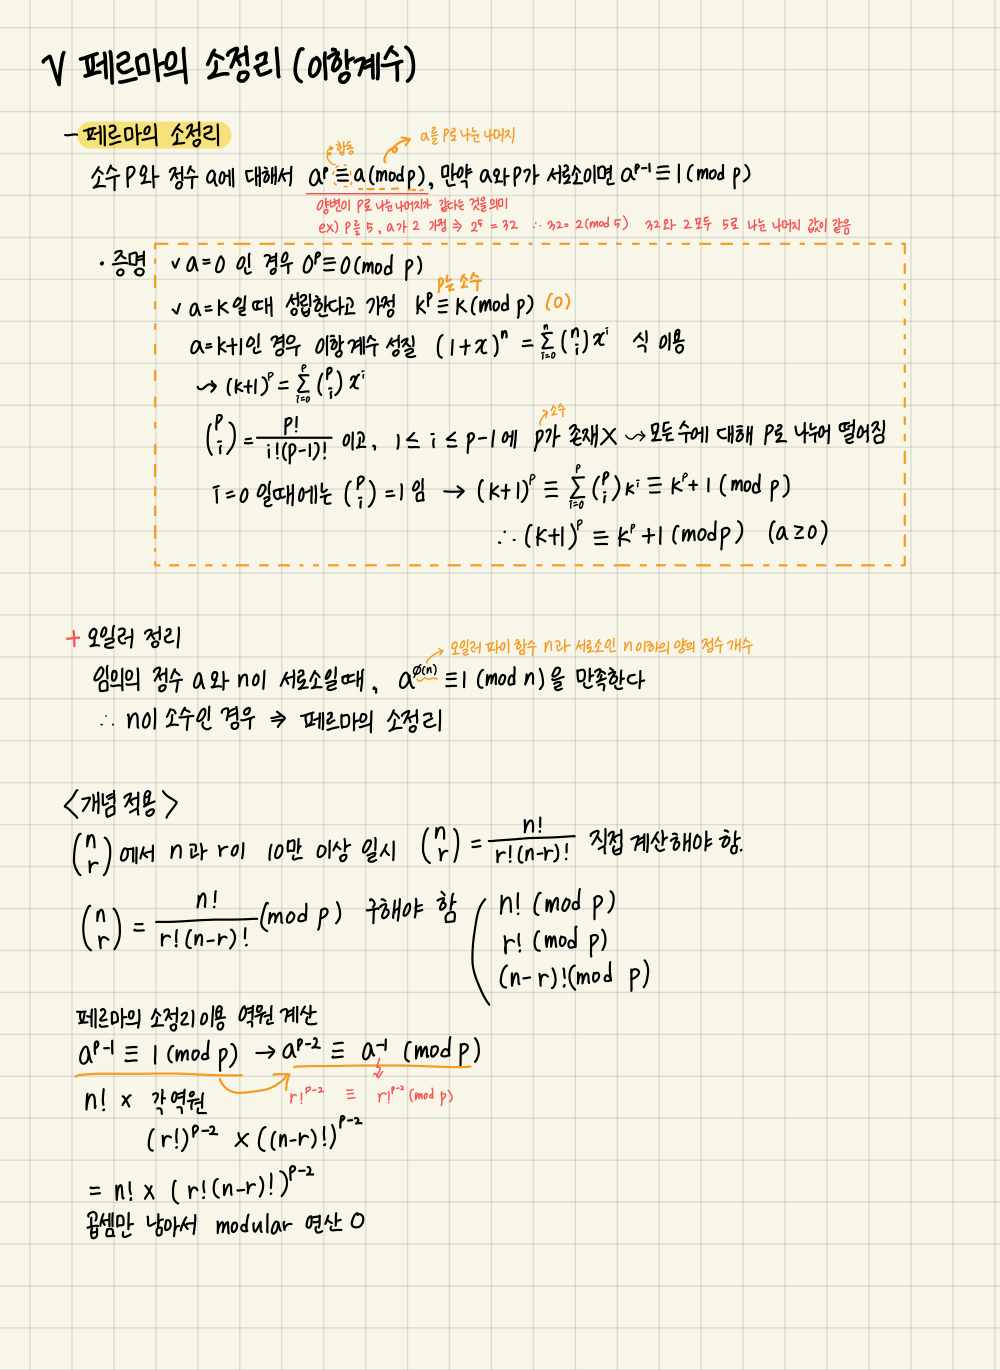 √ 페르마의 소정리 (이항계수)
- 페르마의 소정리
합동
a를 P로 나눈 나머지
소수 P와 정수 a에 대해서 a^p ≡ a(mod p), 만약 a와 P가 서로소이면 a^{p-1} ≡ 1 (mod p)
양변이 P로 나눈 나머지가 같다는 것을 의미
ex) P를 5, a가 2 가정 ⇒ 2^5 = 32 ∴ 32 = 2(mod 5) 32와 2 모두 5로 나눈 나머지 값이 같음
· 증명 ∨ a=0 인 경우 0^p ≡ 0 (mod p)
p는 소수
∨ a=k일때 성립한다고 가정 k^p ≡ k(mod p) (0)
a=k+1인 경우 이항계수 성질 (1+x)^n = Σ_{i=0}^{n} (n i) x^i 식 이용
↪ (k+1)^p = Σ_{i=0}^{p} (p i) x^i
소수
(p i) = p! / i!(p-1)! 이고, 1 ≤ i ≤ p-1 에 p가 존재X ↪ 모든수에 대해 P로 나누어 떨어짐
i=0 일때에는 (p i) = 1 임 → (k+1)^p ≡ Σ_{i=0}^{p} (p i) k^i ≡ k^p + 1 (mod p)
∴ (k+1)^p ≡ k^p + 1 (mod p) (a ≥ 0)
+ 오일러 정리
오일러 파이 함수 n과 서로소인 n이하의 양의 정수 개수
임의의 정수 a와 n이 서로소일때, a^{ø(n)} ≡ 1 (mod n)을 만족한다
∴ n이 소수인 경우 ⇒ 페르마의 소정리
<개념 적용>
(n r) 에서 n과 r이 10만 이상 일시 (n r) = n! / r!(n-r)! 직접 계산해야 함.
(n r) = n! / r!(n-r)! (mod p) 구해야 함
n! (mod p)
r! (mod p)
(n-r)!(mod p)
페르마의 소정리 이용 역원 계산
a^{p-1} ≡ 1 (mod p) → a^{p-2} ≡ a^{-1} (mod p)
r!^{p-2} ≡ r!^{p-2} (mod p)
n! × 각 역원
(r!)^{p-2} × ((n-r)!)^{p-2}
= n! × (r!(n-r)!)^{p-2}
곱셈만 남아서 modular 연산 O